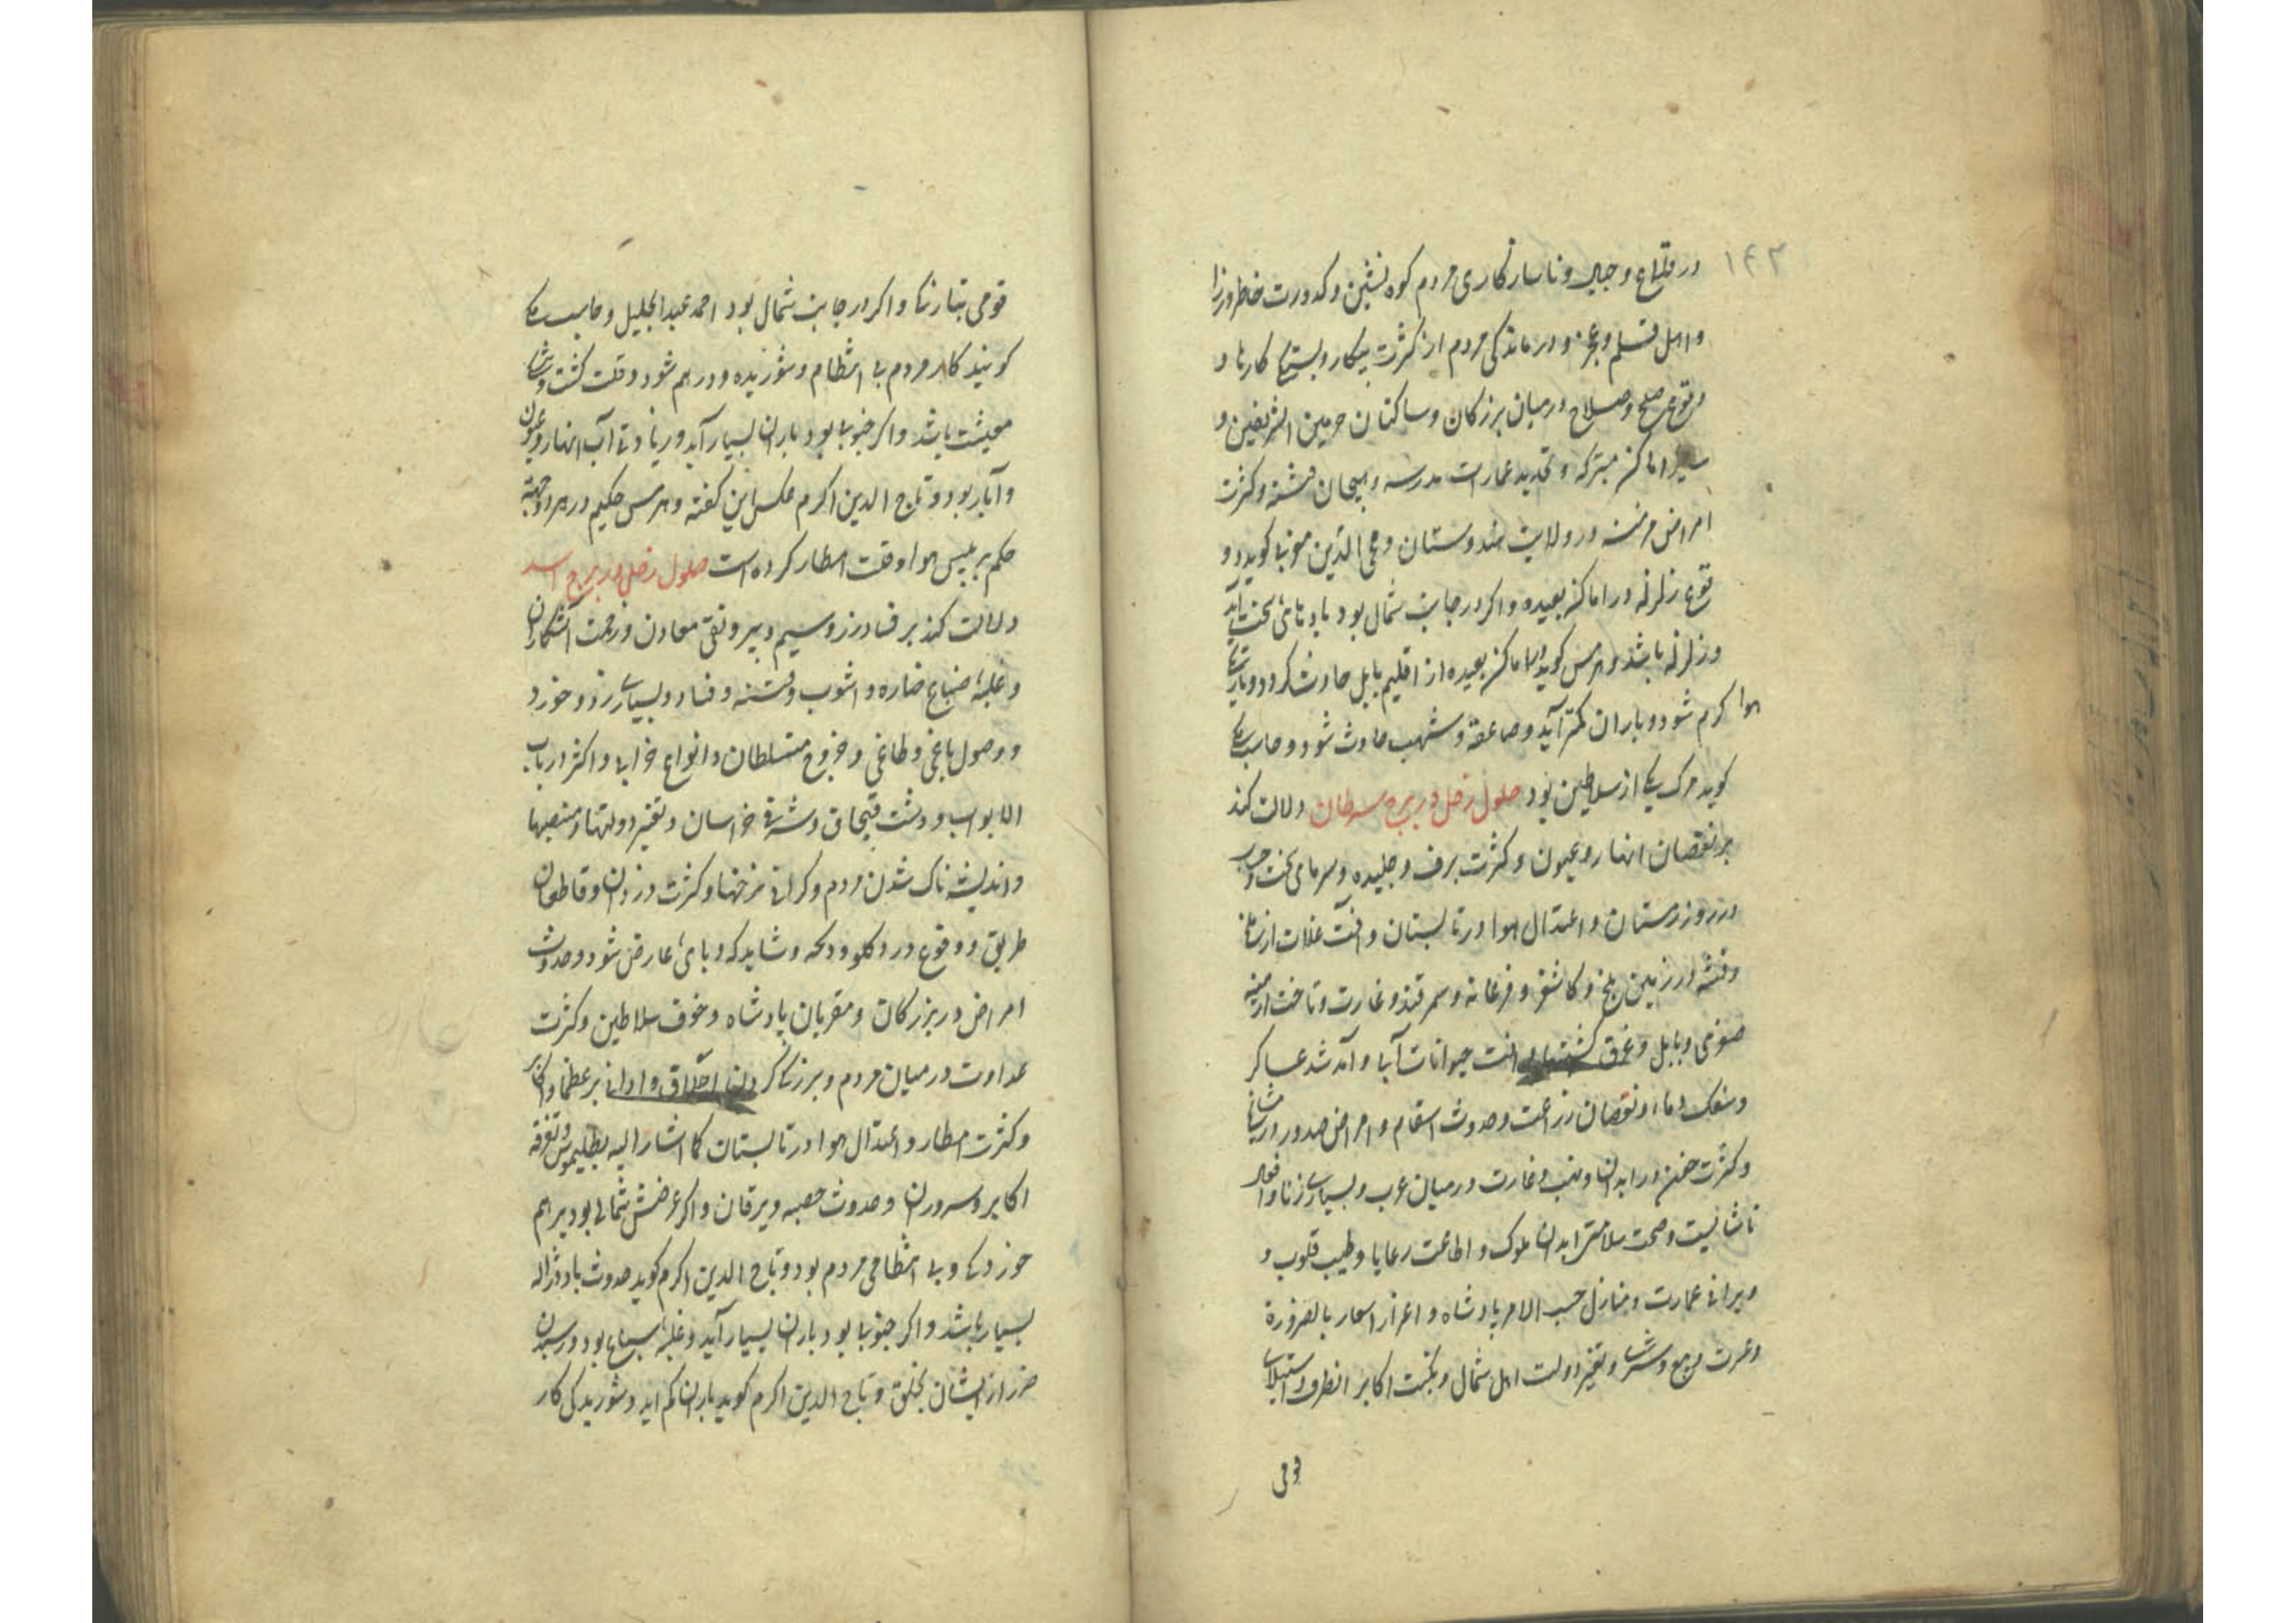 ۱۴۳
در قلاع و جبال و ناسازکاری مردم کوه نشین و کدورت خاطر وزرا
و اهل قلم و عجز و درماندکی مردم از کثرت پیکار و بستکی کارها و
وقوع صلح و صلاح در میان بزرکان و ساکنان حرمین الشریفین و
سایر اماکن متبرکه و تجدید عمارت مدرسه و هیجان فتنه و کثرت
امراض مزمنه در ولایت هندوستان و محی الدین مغربی کوید و
قوع زلزله در اماکن بعیده و اکر در جانب شمال بود بادهای سخت آید
و زلزله باشد و هرمس کوید در اماکن بعیده از اقلیم بابل حادث کردد و
هوا کرم شود و باران کمتر آید و صاعقه و شهب حادث شود و جاسب
کوید مرک یکی از سلاطین بود حلول زحل در برج سرطان دلالت کند
بر نقصان انهار و عیون و کثرت برف و جلیده و سرمای سخت
در روز زمستان و اعتدال هوا در تابستان و آفت غلات ارضی
و فتنه در زمین بلخ و کاشغر و فرغانه و سمرقند و غارت و تاخت ارمنیه
صغری و بابل و غرق کشتیها و آفت حیوانات آبی و آمد شد عساکر
و سفک دماء و نقصان زراعت و حدوث اسقام و امراض صدور و
و کثرت حزن در ابدان و نهب و غارت در میان عرب و بسیاری زنا و افعال
ناشایست و صحت سلامتی ابدان ملوک و اطاعت رعایا و طیب قلوب و
ویرانی عمارت و منازل حسب الامر پادشاه و اعزاز اسعار بالضرورة
و عسرت و تغیر دولت اهل شمال و نکبت اکابر انطرف و استیلای
قومی
قومی بتازکی و اکر در جانب شمال بود احمد عبدالجلیل و جاسب
کویند کار مردم بی انتظام و شوریده و درهم شود و قلت کشت و
معیشت باشد و اکر جنوبی بود باران بسیار آید و زیادتی آب انهار و عیون
و آبار بود و تاج الدین اکرم عکس این کفته و هرمس حکیم در هر دو جهة
حکم بر یبس هوا و قلت امطار کرده است حلول زحل در برج اسد
دلالت کند بر فساد زر و سیم و بیرونقی معادن و زحمت آتشکاران
و غلبهٔ ضباع ضاره و آشوب و فتنه و فساد و بسیاری زد و خورد
و وصول یاغی و طاغی و خروج متسلطان و انواع خرابی و اکثر در باب
الابواب و دشت قبچاق و شرقی خراسان و تغیر دولتها و منصبها
و اندیشه ناک شدن مردم و کرانی نرخها و کثرت دزدان و قاطعان
طریق و وقوع درد کلو و دلحه و شاید که وبائی عارض شود و حدوث
امراض در بزرکان و مقربان پادشاه و خوف سلاطین و کثرت
عداوت در میان مردم و بزرکی کردن اجلاف و ادانی بر عظما و اکابر
و کثرت امطار و اعتدال هوا در تابستان کما اشار الیه بطلیموس و تفرقه
اکابر و سروران و حدوث حصبه و یرقان و اکر عرضش شمالی بود برهم
خوردکی و بی انتظامی مردم بود و تاج الدین اکرم کوید حدوث باد و ژاله
بسیار باشد و اکر جنوبی بود باران بسیار آید و غلبهٔ سباع بود و رسیدن
ضرر از ایشان بخلق و تاج الدین اکرم کوید باران کم آید و شوریدکی کار